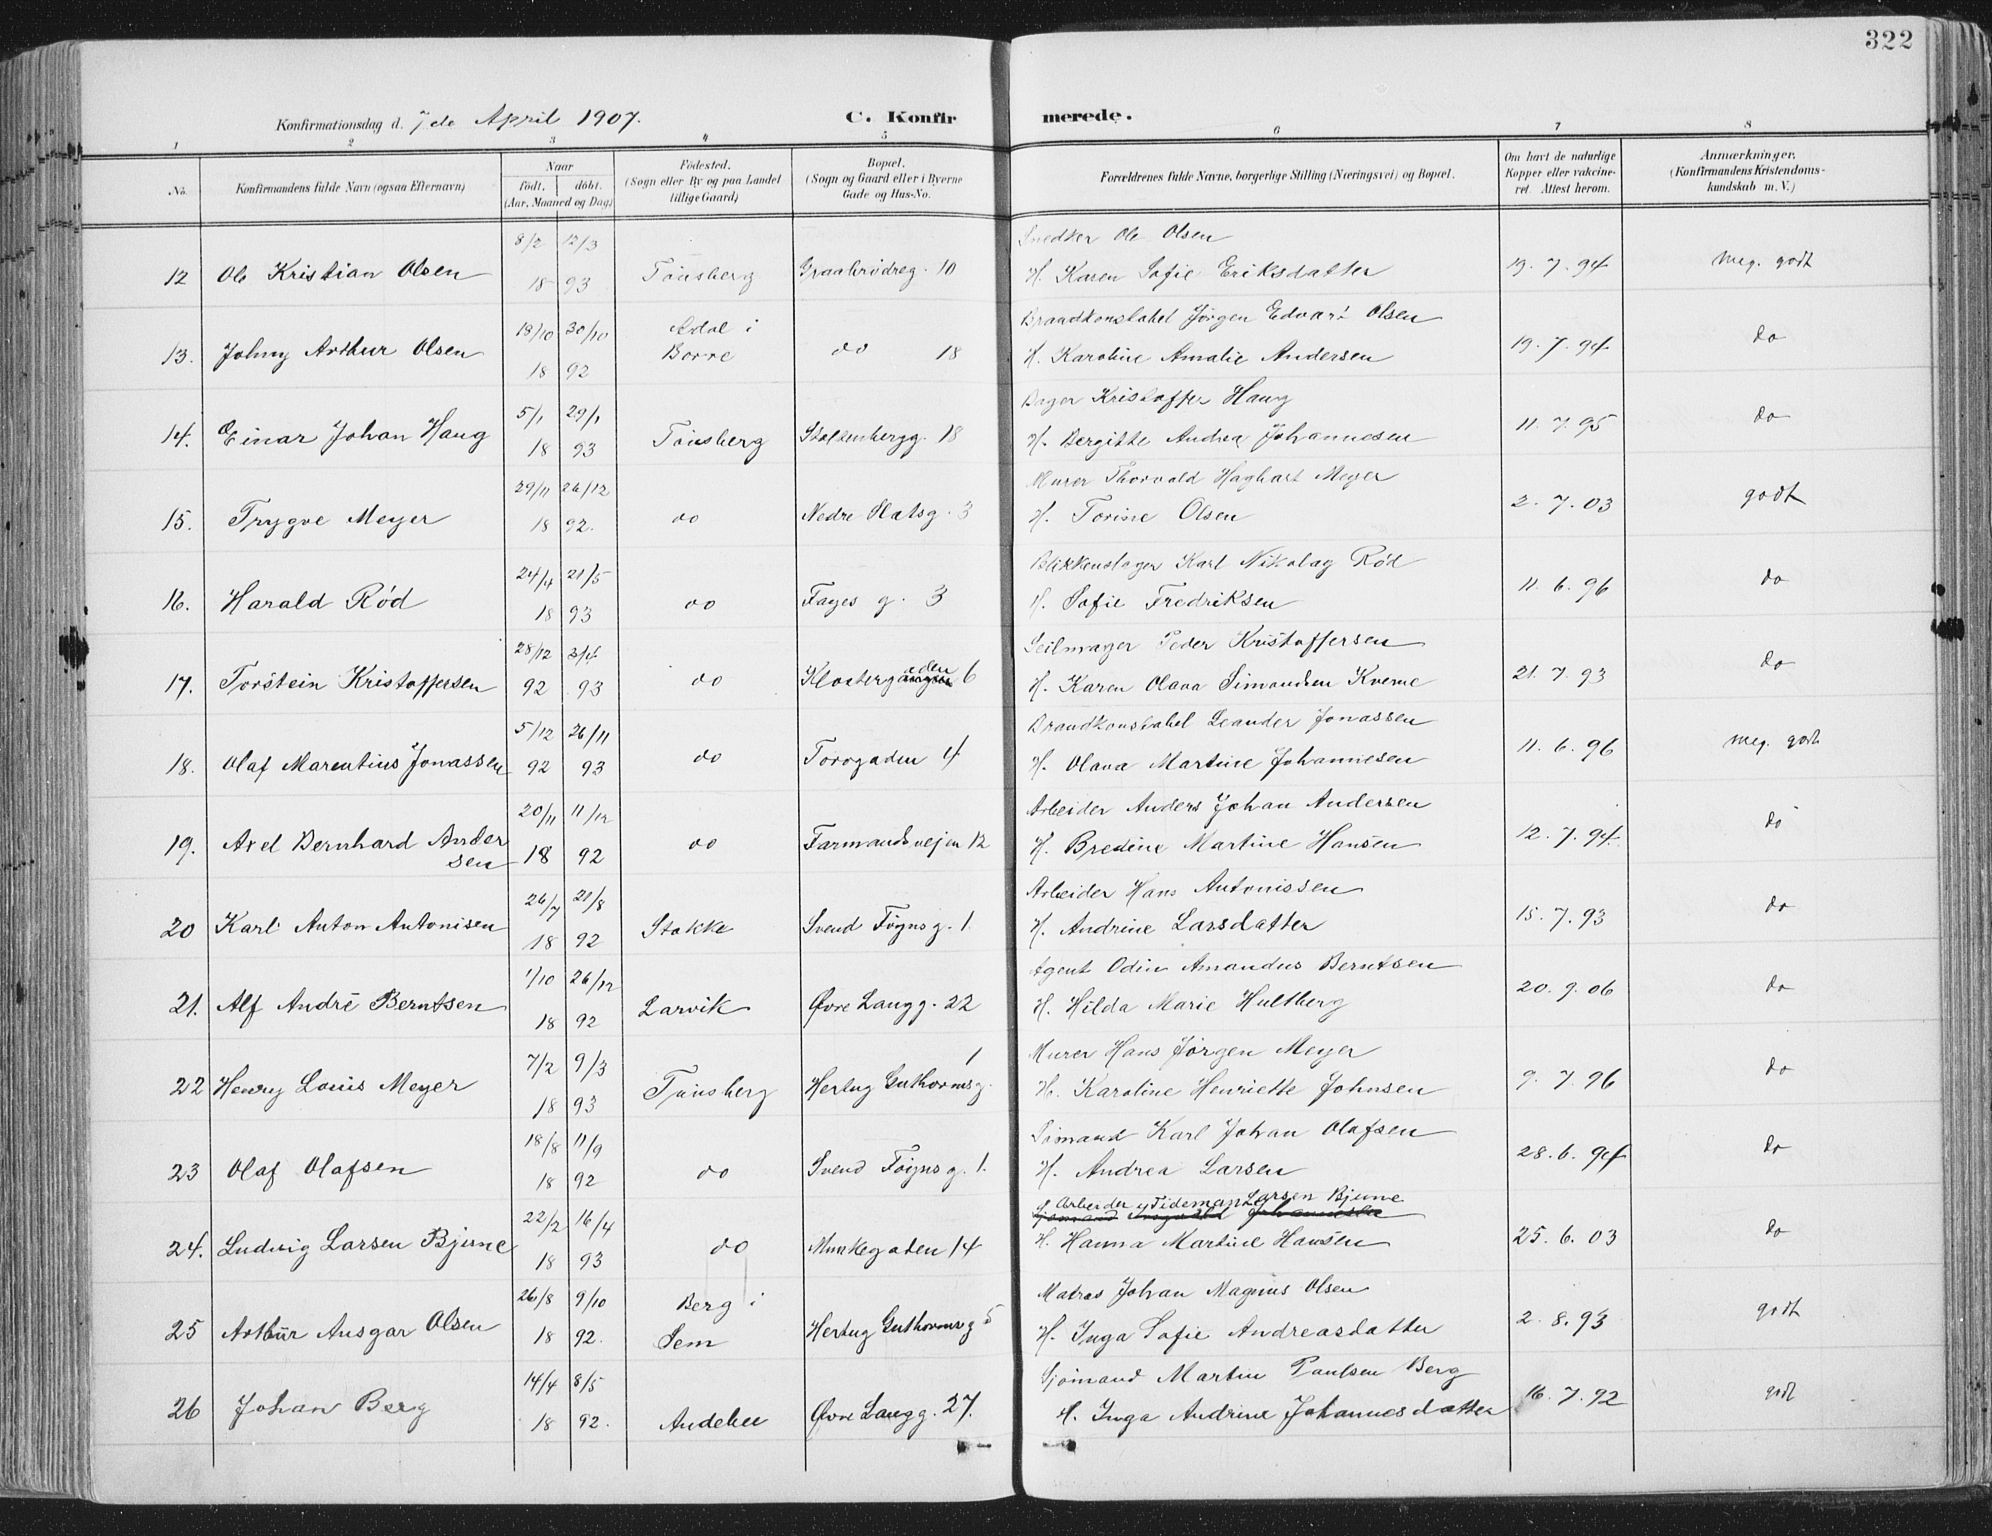 322
Konfirmationsdag d. 7de April 1907.
C. Konfirmerede.
1 2 3 4 5 6 7 8
No. Konfirmandens fulde Navn (ogsaa Efternavn) Naar født, døbt. (Aar, Maaned og Dag) Fødested. (Sogn eller By og paa Landet tillige Gaard) Bopæl. (Sogn og Gaard eller i Byerne Gade og Hus-No. Forældrenes fulde Navne, borgerlige Stilling (Næringsvei) og Bopæl. Om havt de naturlige Kopper eller vakcineret. Attest herom. Anmærkninger. (Konfirmandens Kristendomskundskab m. V.)
8/2 12/3 Snedker Ole Olsen
12 Ole Kristian Olsen 18 93 Tønsberg Graabrødreg. 10 H. Karen Sofie Eriksdatter 19. 7. 94 Meg. godt
18/10 30/10 i Brandkonstabel Jørgen Edvard Olsen
13. Johny Arthur Olsen 18 92 Borre do 18 H. Karoline Amalie Andersen 19. 7. 94 do
5/1 29/1 Bager Kristoffer Haug
14. Einar Johan Haug 18 93 Tønsberg Stoltenbergg. 18 H. Bergitte Andrea Johannesen 11. 7. 95 do
29/11 26/12 Murer Thorvald Haghart Meyer
15. Trygve Meyer 18 92. do Nedre Slotsg. 3 H. Torine Olsen 2. 7. 03 godt
24/4 21/5 Blikkenslager Karl Nikolay Rød
16. Harald Rød 18 93 do Fayes g. 3 H. Sofie Fredriksen 11. 6. 96 do
28/12 3/4 Seilmager Peder Kristoffersen
17. Torstein Kristoffersen 92 93 do Klostergaden 6 H. Karen Olava Simondsen Kverne 21. 7. 93 do
5/12 26/11 Brandkonstabel Leander Jonassen
18. Olaf Marentius Jonassen 92 93 do Torvgaden 4 H. Olava Martine Johannesen 11. 6. 96 Meg. godt
20/11 11/12 Arbeider Anders Johan Andersen
19. Axel Bernhard Andersen 18 92 do Farmandsvejen 12 H. Bredine Martine Hansen 12. 7. 94. do
26/7 21/8 Arbeider Hans Antonissen
20 Karl Anton Antonisen 18 92 Stokke Svend Føyns g. 1. H. Andrine Larsdatter 15. 7. 93 do
1/10 26/12 Agent Odin Amandus Berntsen
21. Alf André Berntsen 18 92 Larvik Øvre Langg. 22 H. Hilda Marie Hultberg 20. 9. 06 do
7/2 9/3 1 Murer Hans Jørgen Meyer
22 Henry Louis Meyer 18 93 Tønsberg Hertug Guthormsg. H. Karoline Henriette Johnsen 9. 7. 96 do
18/8 11/9 Sømand Karl Johan Olafsen
23 Olaf Olafsen 18 92 do Svend Føyns g. 1. H. Andrea Larsen 28. 6. 94 do
22/2 16/4 Arbeider Tideman Larsen Bjune
24. Ludvig Larsen Bjune 18 93 do Munkegaden 14 H. Hanna Martine Hansen 25. 6. 03 do
26/8 9/10 Berg i Matros Johan Magnus Olsen
25 Arthur Ansgar Olsen 18 92. Sem Hertug Guthormsg 5 H. Inga Sofie Andreasdatter 2. 8. 93 godt
14/4 8/5 Sjømand Martin Paulsen Berg
26 Johan Berg 18 92. Andebu Øvre Langg. 27. H. Inga Andrine Johannesdatter 16. 7. 92 godt